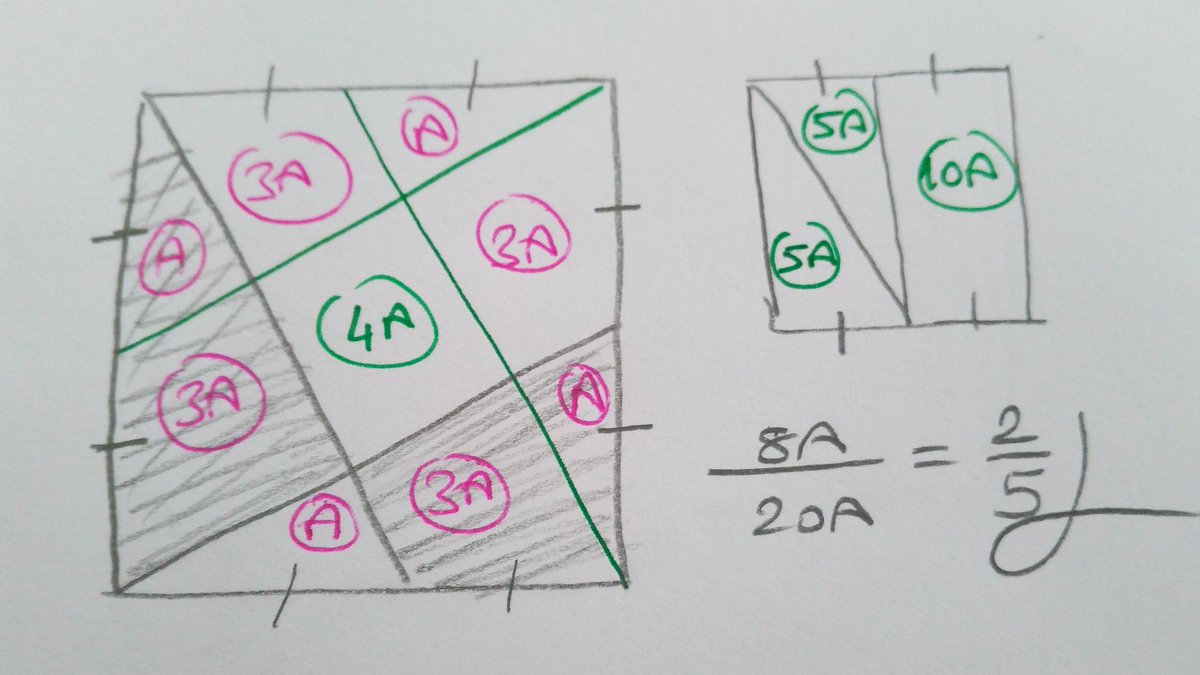 3A A
A 3A
4A
3A A
A 3A
5A
10A
5A
8A
20A
= 2
5